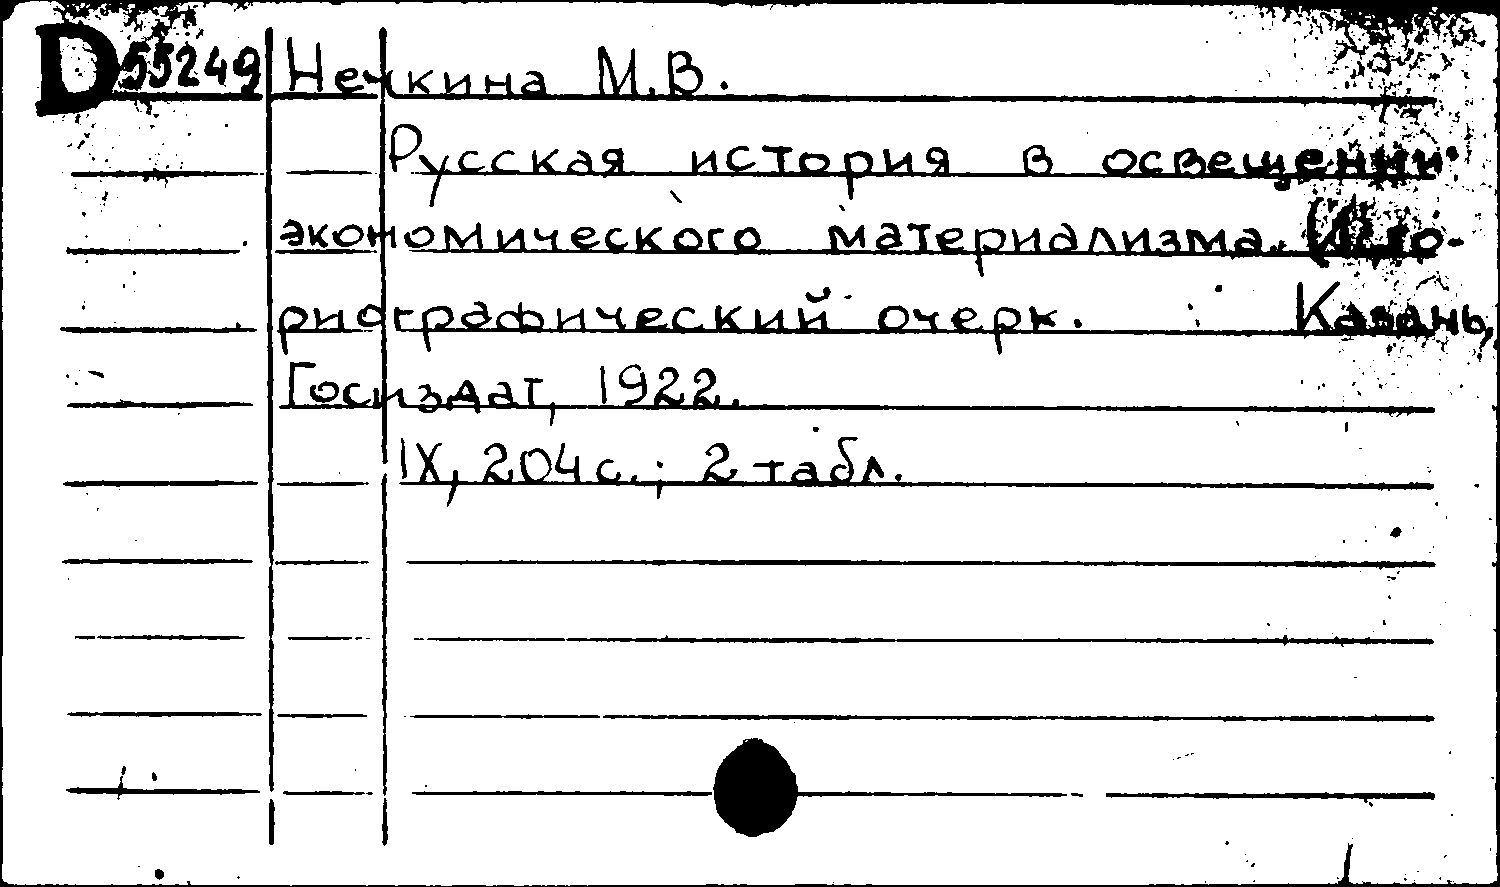 D55249 Нечкина М.В.
Русская история в освещении
экономического материализма. (Исто-
риографический очерк. Казань,
Госиздат, 1922.
IX, 204 с.; 2 табл.